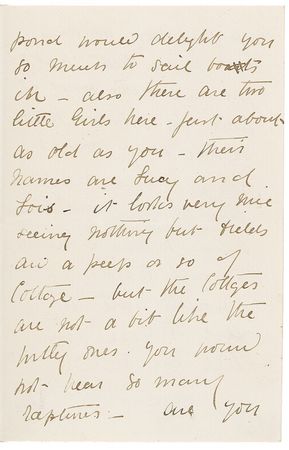 pond would delight you
so much to sail boats
in – also there are two
little Girls here – just about
as old as you – their
names are Lucy and
Lois – it looks very nice
seeing nothing but fields
and a peep or so of
Cottage – but the Cottages
are not a bit like the
pretty ones. you
not hear so many
raptures – are you